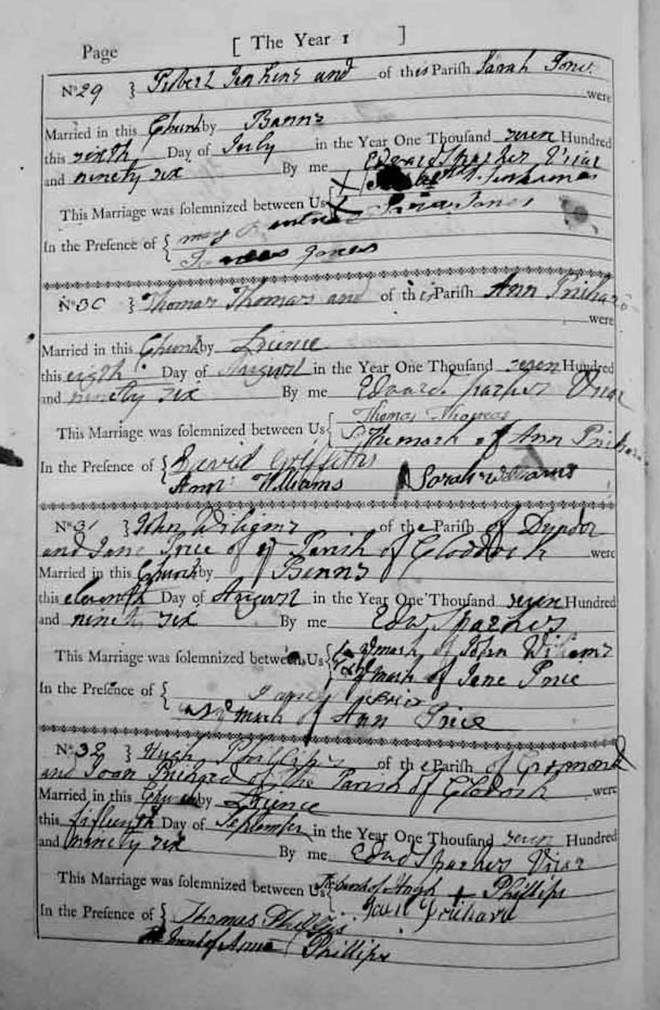 Page [ The Year 1 ]
No 29 } Robert Jenkins and of this Parish Sarah Jones
were
Married in this Church by Banns
this sixth Day of July in the Year One Thousand seven Hundred
and ninety six By me Edward Sparkes Vicar
X Jenkins
This Marriage was solemnized between Us { X Sarah Jones
In the Presence of { mary
James Jones
No 30 } Thomas Thomas and of this Parish Ann Prichard
were
Married in this Church by Licence
this eigth Day of August in the Year One Thousand seven Hundred
and ninety six By me Edward Sparkes Vicar
Thomas Thomas
This Marriage was solemnized between Us { The mark of Ann Prichard
In the Presence of { David Griffiths
Ann Williams Sarah Williams
No 31 } John Wiliams of the Parish of Dundor
and Jane Price of ye Parish of Clodock were
Married in this Church by Banns
this eleventh Day of August in the Year One Thousand seven Hundred
and ninety six By me Edw Sparkes
mark of John Wiliams
This Marriage was solemnized between Us { mark of Jane Price
In the Presence of {
mark of Ann Price
No 32 } Hugh Phillips of the Parish of Grosmond
and Joan Prichard of the Parish of Clodock were
Married in this Church by Licence
this fifteenth Day of September in the Year One Thousand seven Hundred
and ninety six By me Edwd Sparkes Vicar
This Marriage was solemnized between Us { of Hugh + Phillips
Joan Prichard
In the Presence of { Thomas Phillips
of Anna Phillips